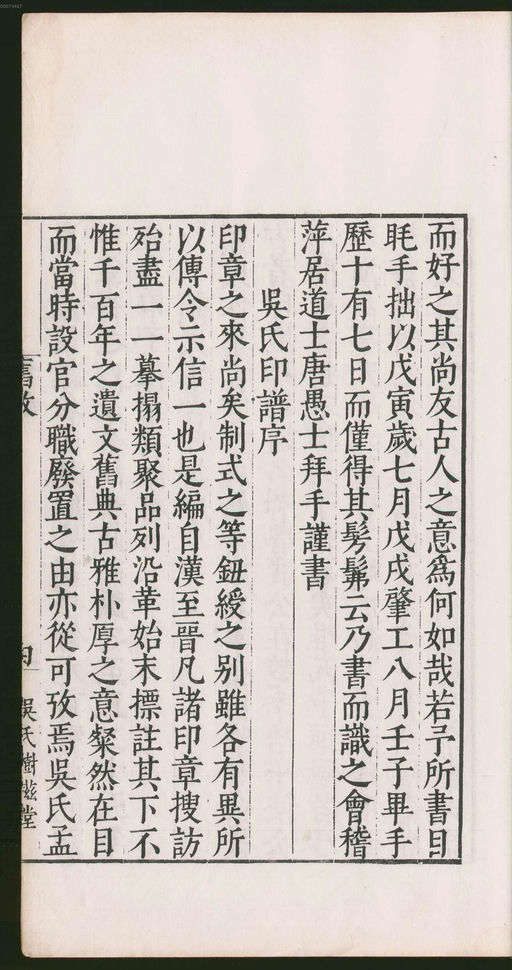 而好之其尚友古人之意爲何如哉若予所書目
眊手拙以戊寅歲七月戊戌肇工八月壬子畢手
歷十有七日而僅得其髣髴云乃書而識之會稽
萍居道士唐愚士拜手謹書
吳氏印譜序
印章之來尚矣制式之等鈕綬之别雖各有異所
以傳令示信一也是編自漢至晉凡諸印章搜訪
殆盡一一摹搨類聚品列沿革始末標註其下不
惟千百年之遺文舊典古雅朴厚之意粲然在目
而當時設官分職廢置之由亦從可攷焉吳氏孟
舊敘
吳氏樹滋堂
00073447